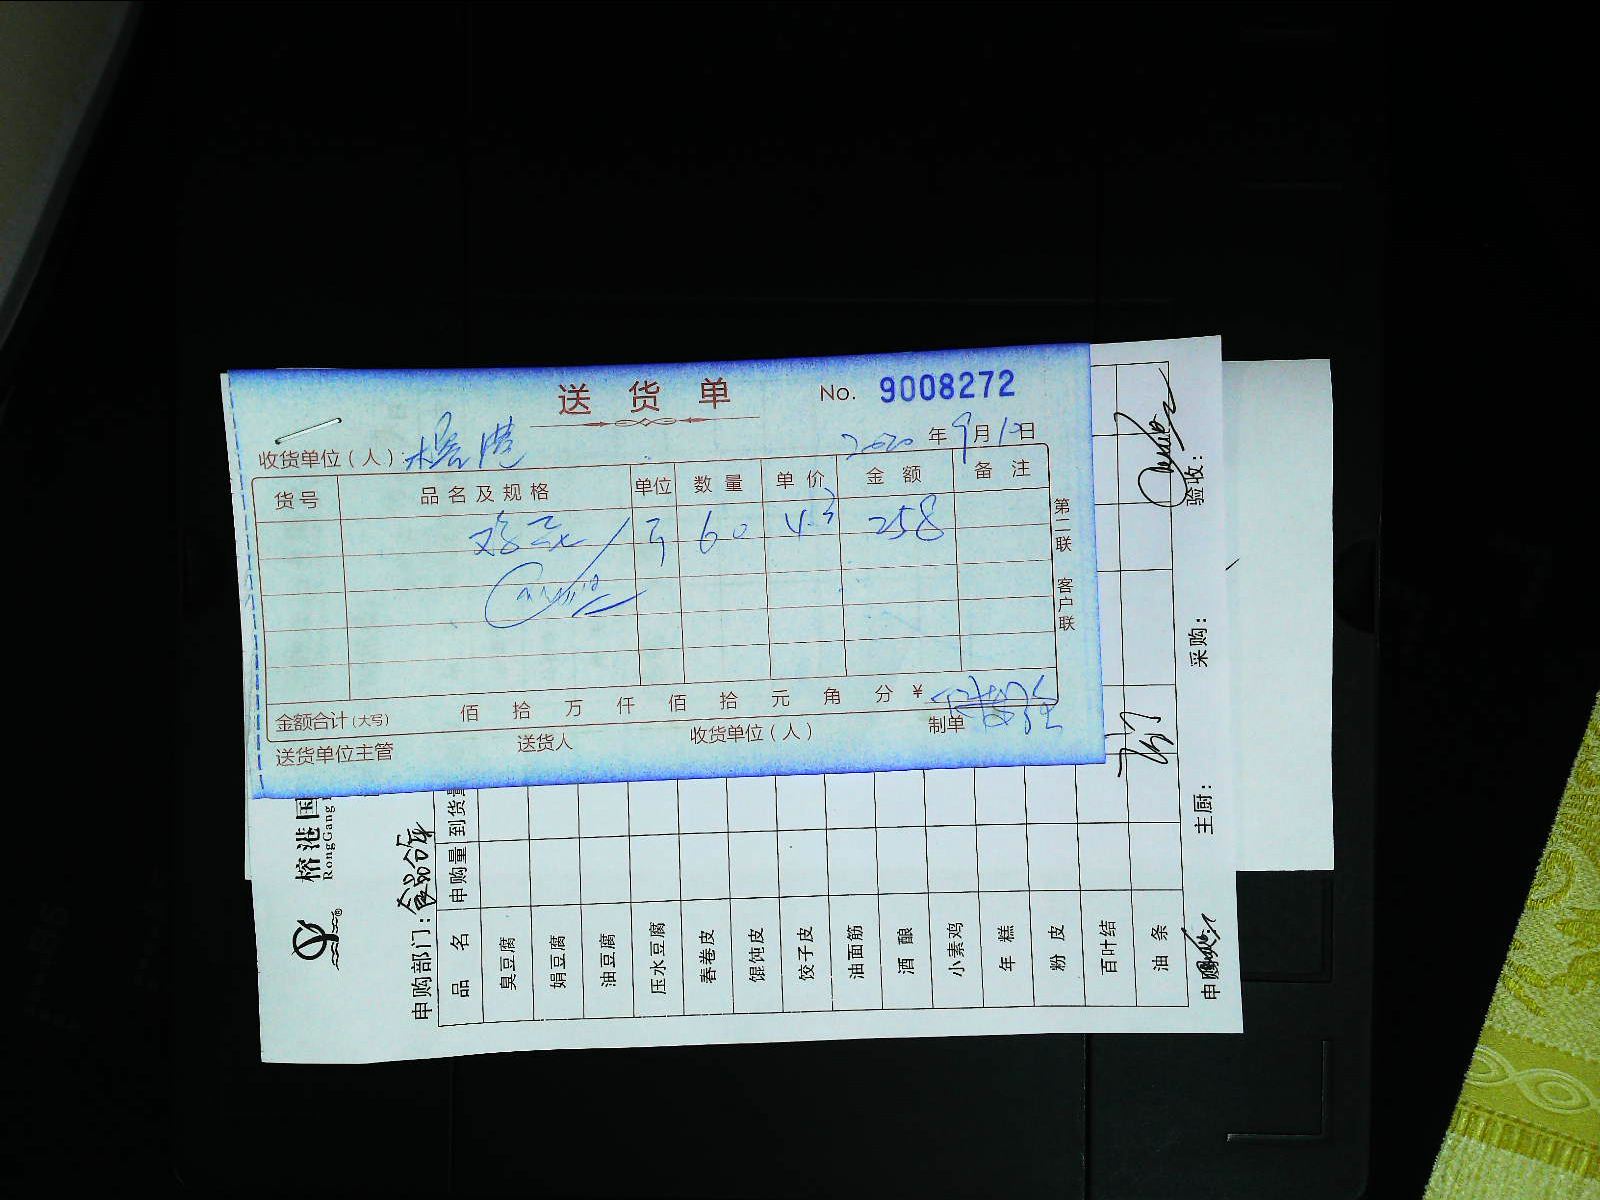 送货单
No. 9008272
收货单位(人): 榕港
2020年9月10日
货号 品名及规格 单位 数量 单价 金额 备注
60 4.3 258
第二联 客户联
金额合计(大写) 佰 拾 万 仟 佰 拾 元 角 分 ¥
送货单位主管 送货人 收货单位(人) 制单
榕港国
RongGang
申购部门:
品名 申购量 到货量
臭豆腐
娟豆腐
油豆腐
压水豆腐
春卷皮
馄饨皮
饺子皮
油面筋
酒酿
小素鸡
年糕
粉皮
百叶结
油条
主厨: 采购: 验收: